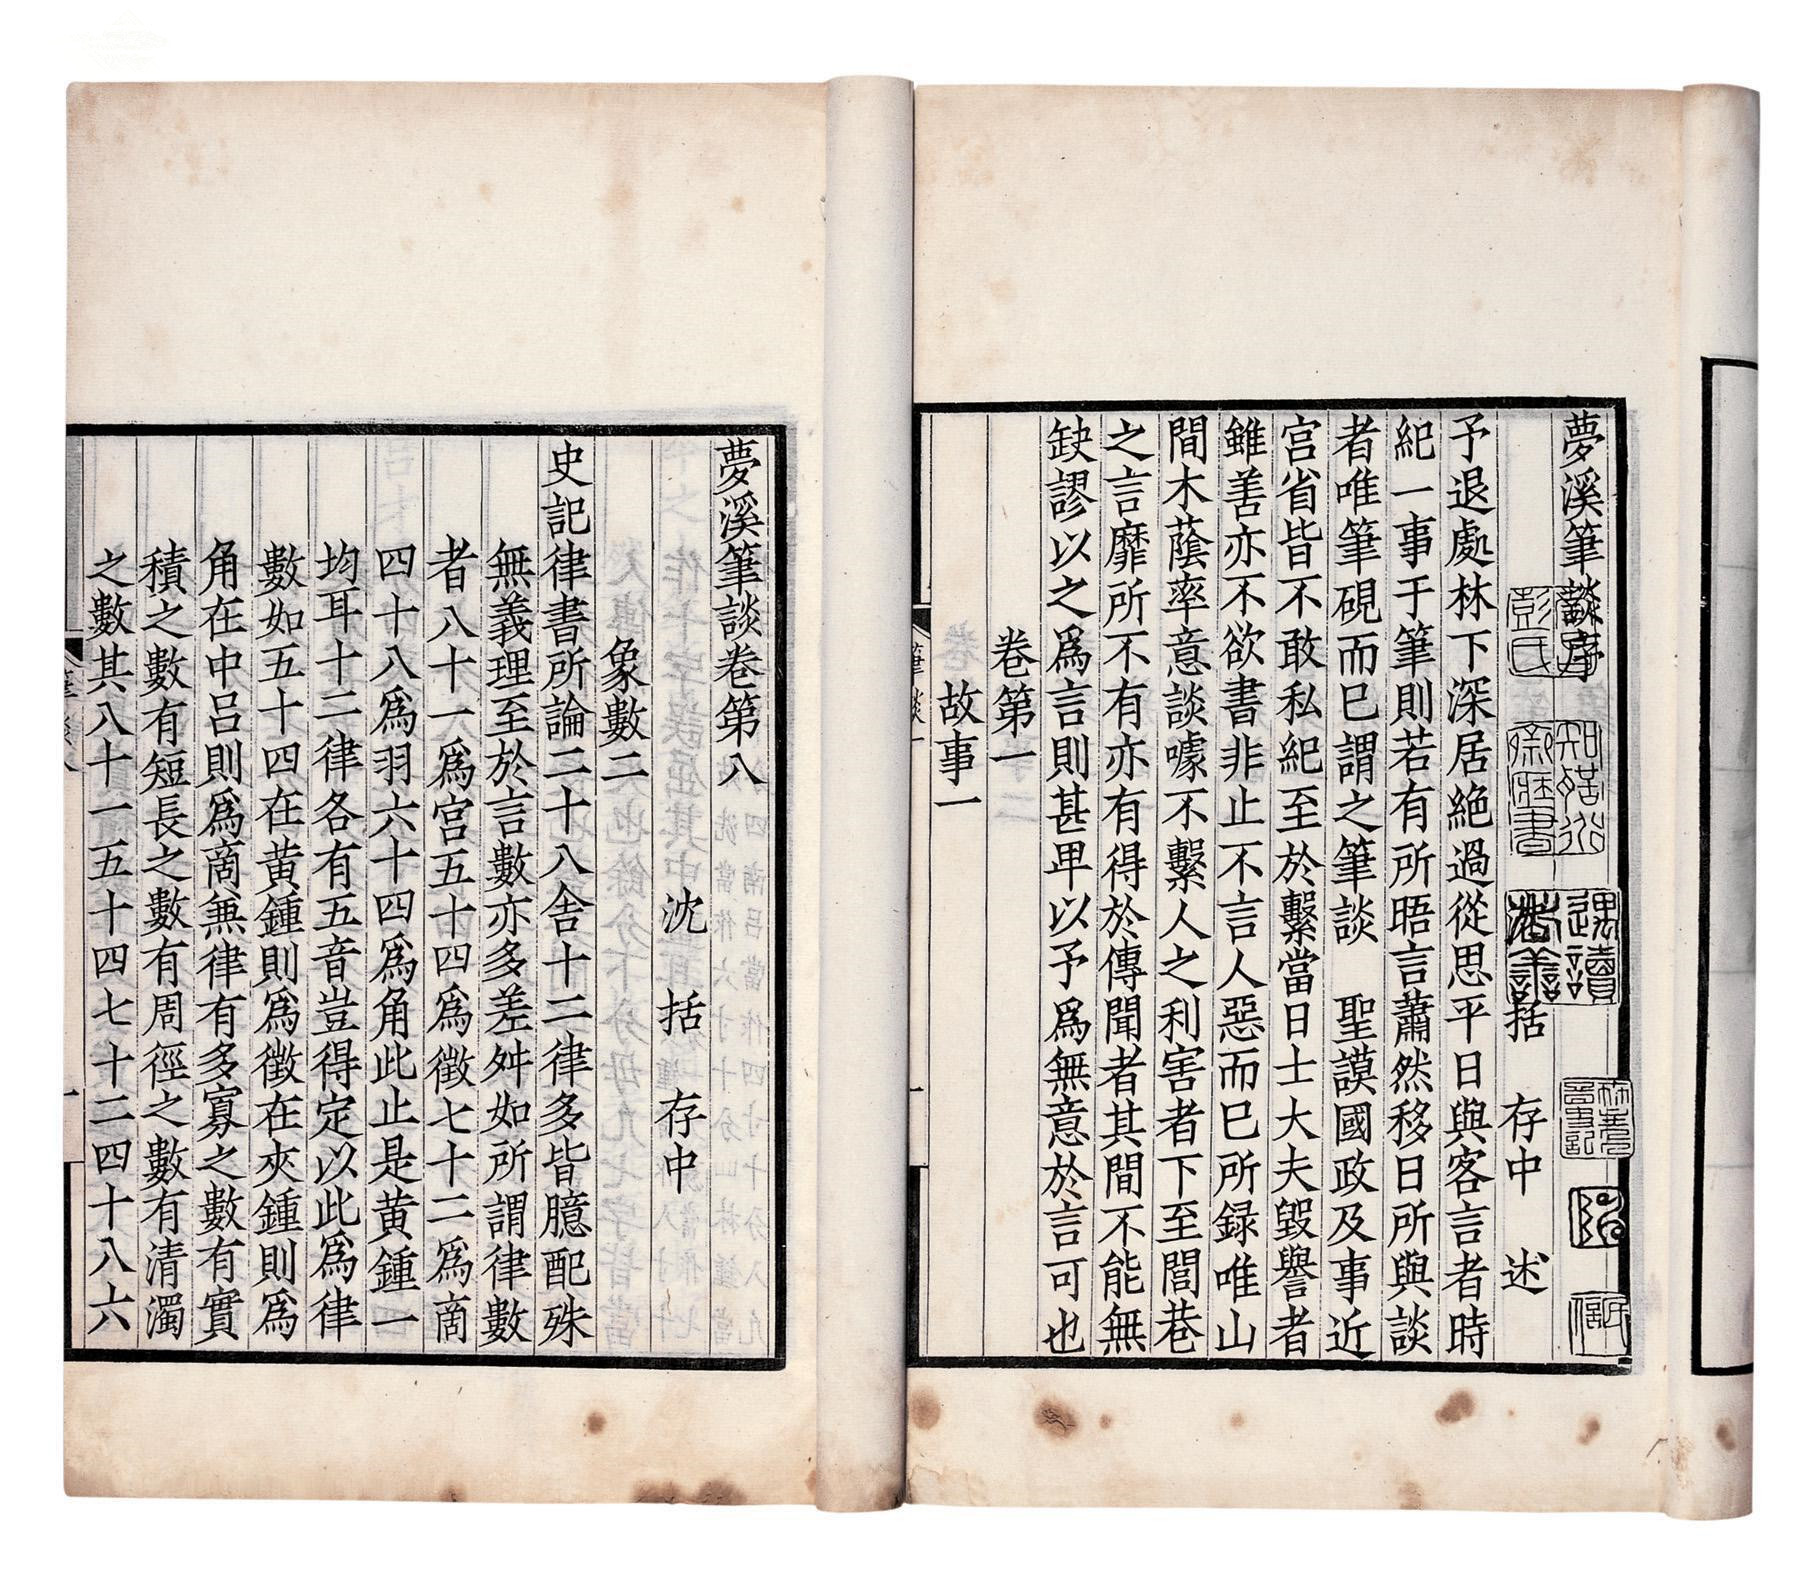 夢溪筆談序
沈括　存中　述
予退處林下深居絶過從思平日與客言者時
紀一事于筆則若有所晤言蕭然移日所與談
者唯筆硯而巳謂之筆談　聖謨國政及事近
宮省皆不敢私紀至於繫當日士大夫毀譽者
雖善亦不欲書非止不言人惡而巳所録唯山
間木蔭率意談噱不繫人之利害者下至閭巷
之言靡所不有亦有得於傳聞者其間不能無
缺謬以之爲言則甚卑以予爲無意於言可也
卷第一
故事一
筆談一
夢溪筆談卷第八
沈　括　存中
象數二
史記律書所論二十八舍十二律多皆臆配殊
無義理至於言數亦多差舛如所謂律數
者八十一爲宮五十四爲徵七十二爲商
四十八爲羽六十四爲角此止是黄鍾一
均耳十二律各有五音豈得定以此爲律
數如五十四在黄鍾則爲徵在夾鍾則爲
角在中呂則爲商兼律有多寡之數有實
積之數有短長之數有周徑之數有清濁
之數其八十一五十四七十二四十八六
筆談八